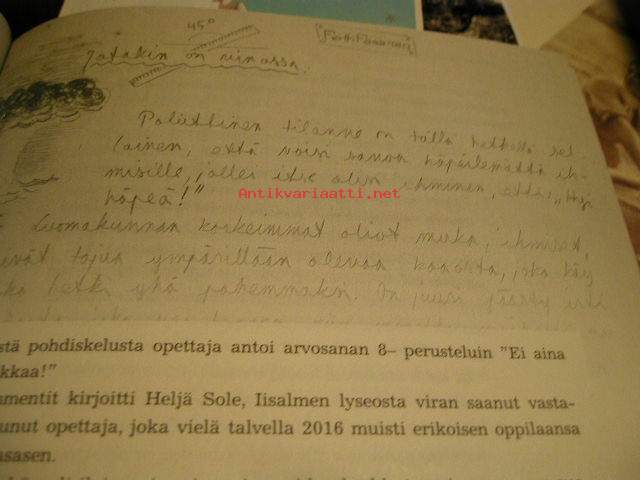 45°
Jotakin on vinossa.
Poliittinen tilanne on tällä hetkellä sel-
lainen, että voisi sanoa häpeilemättä ih-
misille, jollei itse olisi ihminen, että: „Hyi
häpeä!"
Antikvariaatti.net
Luomakunnan korkeimmat oliot muka, ihmiset,
eivät tajua ympärillään olevaa kaaosta, joka käy
ka hetki yhä pahemmaksi. On juuri
stä pohdiskelusta opettaja antoi arvosanan 8– perusteluin "Ei aina
kkaa!"
mmentit kirjoitti Heljä Sole, Iisalmen lyseosta viran saanut vasta-
unut opettaja, joka vielä talvella 2016 muisti erikoisen oppilaansa
asasen.